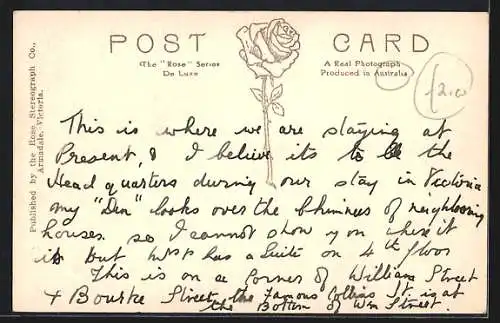 POST CARD
The "Rose" Series
De Luxe
A Real Photograph
Produced in Australia
Published by the Rose Stereograph Co.,
Armadale, Victoria.
This is where we are staying at
Present, & I believe its to be the
Head quarters during our stay in Victoria
my "Den" looks over the Chimnies of neighbouring
houses. so I cannot show you where it
is but has a Suite on 4th floor
This is on a Corner of William Street
+ Bourke Street, the Famous Collins St. is at
the Bottom of Wm Street.